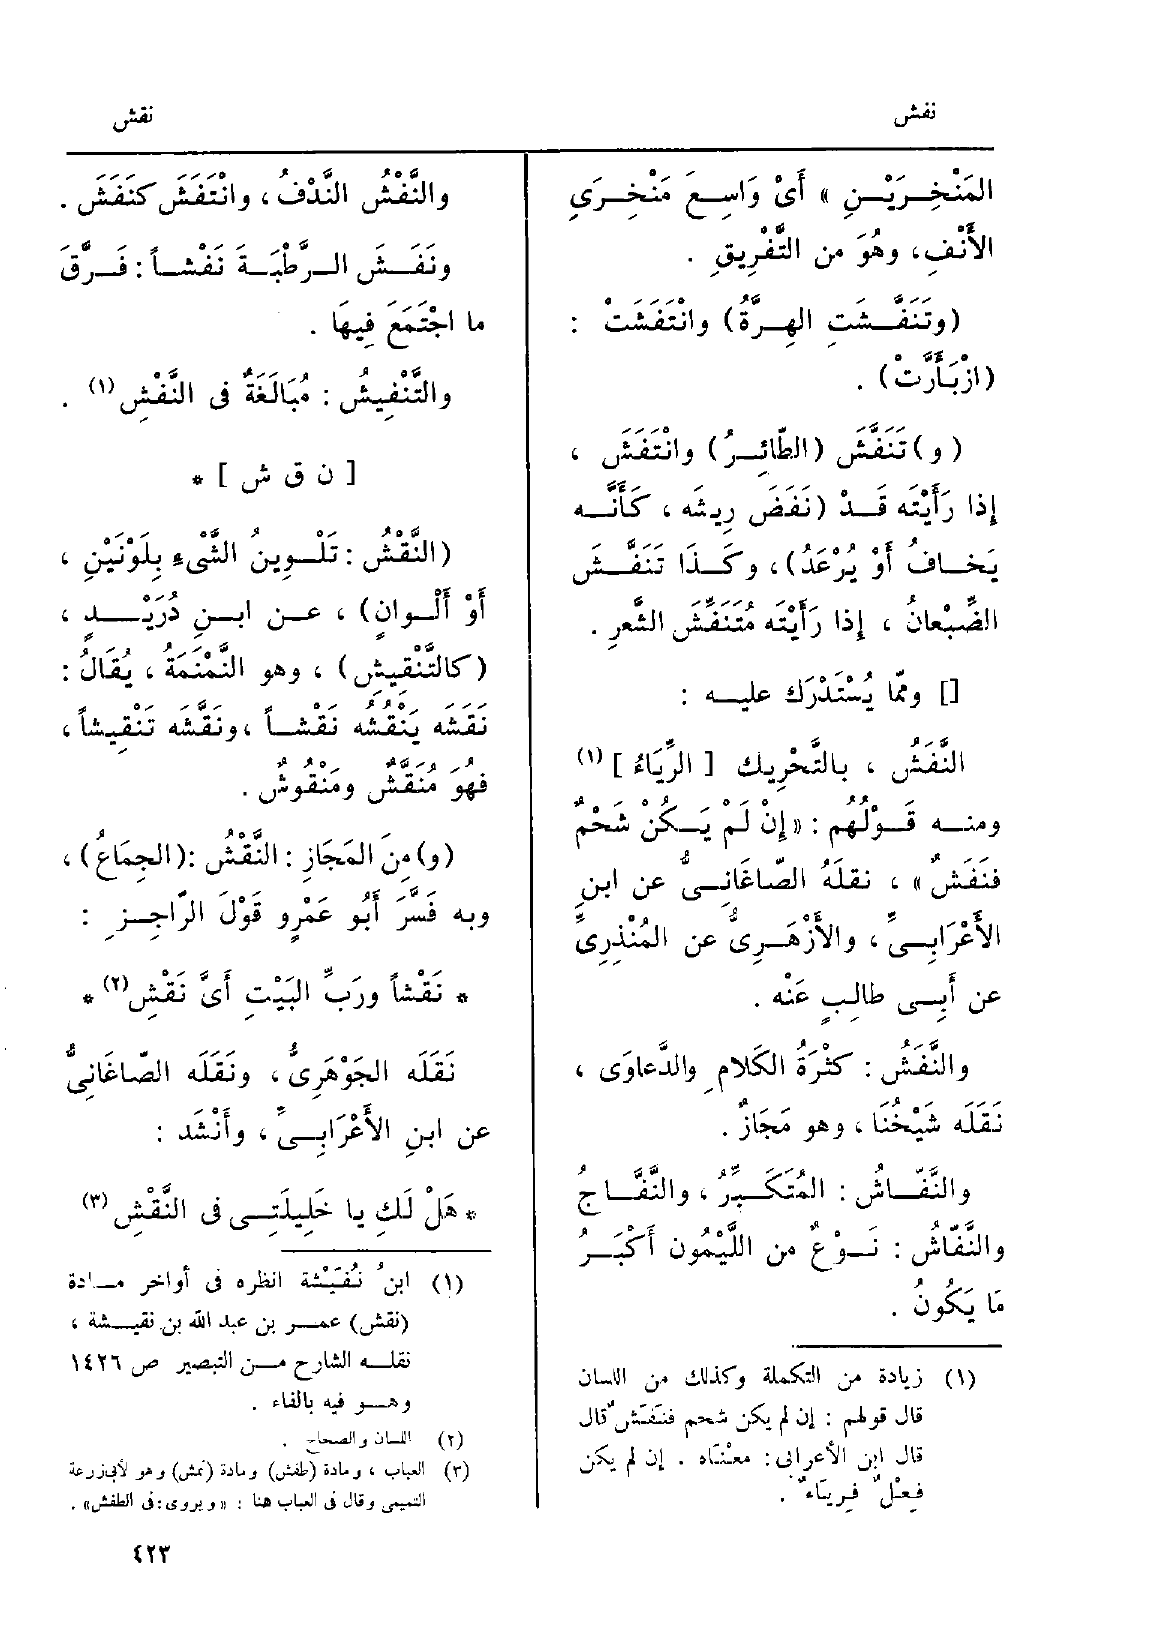 نفش
نقش
المَنْخِرَيْنِ » أَىْ وَاسِعَ مَنْخِرَىِ
الأَنْفِ، وهُوَ من التَّفْرِيقِ .
(وتَنَفَّشَتِ الهِرَّةُ) وانْتَفَشَتْ :
(ازْبَأَرَّتْ) .
(و) تَنَفَّشَ (الطّائِرُ) وانْتَفَشَ ،
إذا رَأَيْتَه قَدْ (نَفَضَ رِيشَه ، كَأَنَّه
يَخافُ أَوْ يُرْعَدُ)، وكَذَا تَنَفَّشَ
الضِّبْعانُ ، إذا رَأَيْتَه مُتَنَفِّشَ الشَّعرِ .
[] وممّا يُسْتَدْرَك عليه :
النَّفَشُ ، بالتَّحْرِيك [ الرِّيَاءُ ] (١)
ومنه قَوْلُهُم : «إنْ لَمْ يَكُنْ شَحْمٌ
فنَفَشٌ » ، نقلَهُ الصّاغَانِىُّ عن ابنِ
الأَعْرَابِىِّ ، والأَزْهَرِىُّ عن المُنْذِرِىِّ
عن أَبِى طالِبٍ عَنْه .
والنَّفَشُ : كثْرَةُ الكَلامِ والدَّعاوَى ،
نَقَلَه شَيْخُنَا ، وهو مَجَازٌ .
والنَّفّاشُ : المُتَكَبِّرُ ، والنَّفَّاجُ
والنَّفّاشُ : نَوْعٌ من اللَّيْمُون أَكْبَرُ
مَا يَكُونُ .
(١) زيادة من التكملة وكذلك من اللسان
قال قولهم : إن لم يكن شحم فنَفَشٌ قال
قال ابن الأعرابى: معنْاه . إن لم يكن
فِعْلٌ فرِيَاءٌ .
والنَّفْشُ النَّدْفُ ، وانْتَفَشَ كنَفَشَ .
ونَفَشَ الرَّطْبَةَ نَفْشاً : فَرَّقَ
ما اجْتَمَعَ فِيهَا .
والتَّنْفِيشُ : مُبَالَغَةٌ فى النَّفْشِ (١) .
[ ن ق ش ] *
(النَّقْشُ : تَلْوِينُ الشَّىْءِ بِلَوْنَيْنِ ،
أَوْ أَلْوانٍ) ، عن ابنِ دُرَيْدٍ ،
(كالتَّنْقِيشِ) ، وهو النَّمْنَمَةُ ، يُقَالُ :
نَقَشَه يَنْقُشُه نَقْشاً ، ونَقَّشَه تَنْقِيشاً ،
فهُوَ مُنَقَّشٌ ومَنْقُوشٌ .
(و) مِنَ المَجَازِ : النَّقْشُ : (الجِمَاعُ) ،
وبه فَسَّرَ أَبُو عَمْرٍو قَوْلَ الرّاجِزِ :
* نَقْشاً ورَبِّ البَيْتِ أَىَّ نَقْشِ (٢) *
نَقَلَه الجَوْهَرِىُّ ، ونَقَلَه الصّاغَانِىُّ
عن ابنِ الأَعْرَابِىِّ ، وأَنْشَد :
* هَلْ لَكِ يا خَلِيلَتِى فى النَّقْشِ (٣)
(١) ابنُ نُفَيْشة انظره فى أواخر مادة
(نقش) عمر بن عبد الله بن نقيشة ،
نقله الشارح من التبصير ص ١٤٢٦
وهو فيه بالفاء .
(٢) اللسان والصحاح .
(٣) العباب ، ومادة (طفش) ومادة (نمش) وهو لأبى زرعة
التميمى وقال فى العباب هنا : «ويروى: فى الطفش» .
٤٢٣